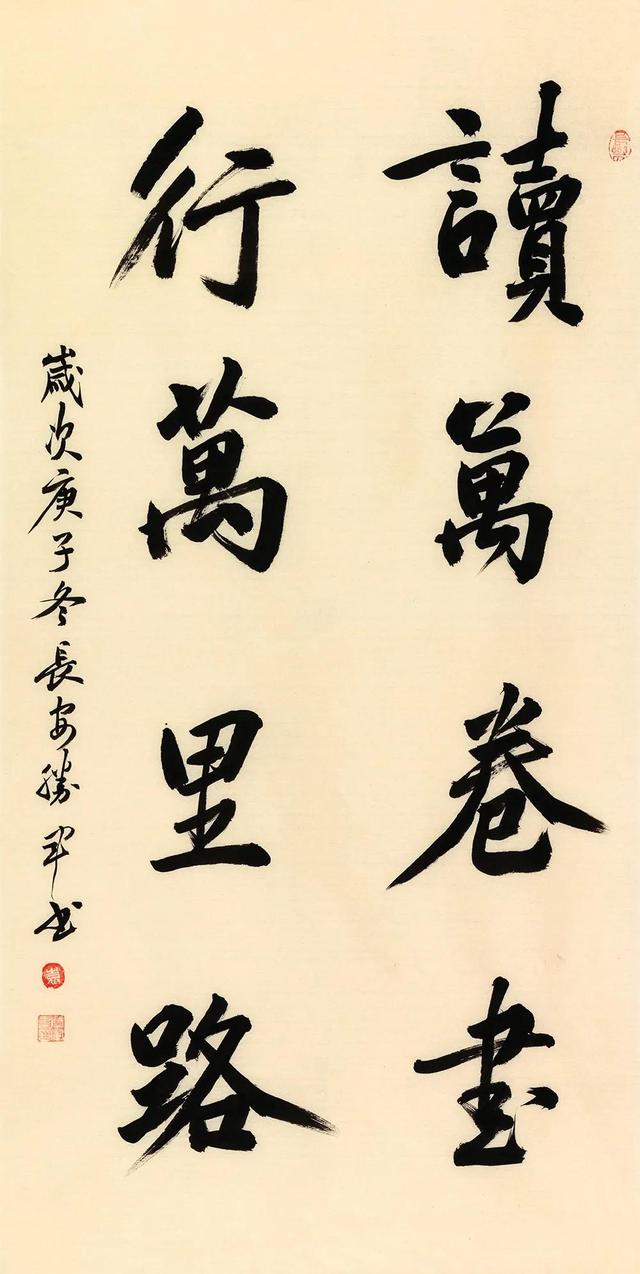 讀萬卷書
行萬里路
歲次庚子冬長安勝軍书